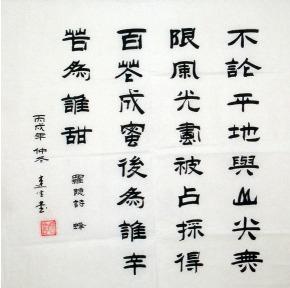 不論平地與山尖無
限風光盡被占採得
百花成蜜後為誰辛
苦為誰甜
羅隱詩 蜂
丙戌年仲冬
書